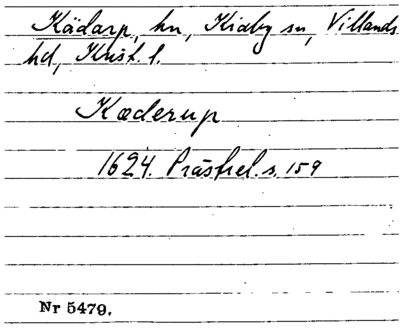 Kädarp, hn, Kiaby sn, Villands
hd, Krist. l.
Kæderup
1624. Prästrel. s. 159
Nr 5479.